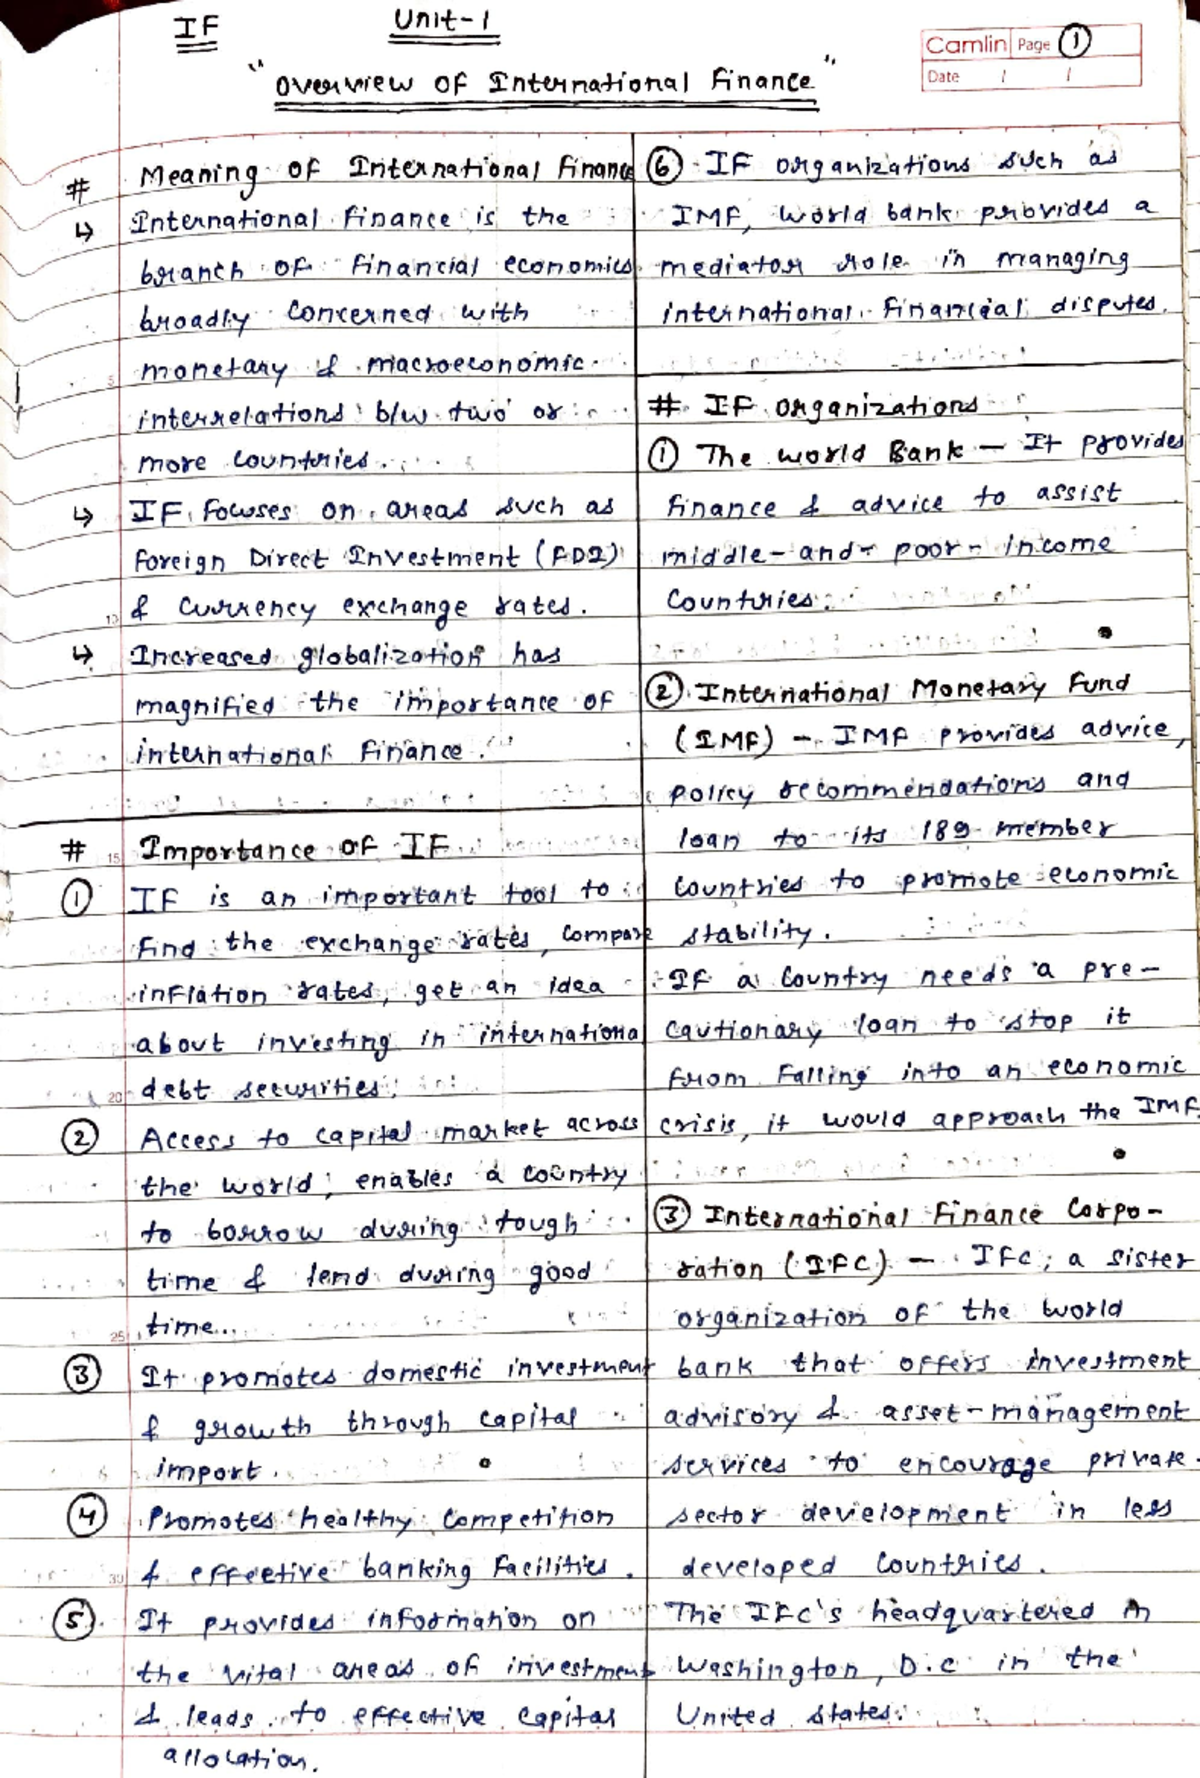 IF
Unit-1
Camlin Page ①
Date / /
"Overview of International Finance"
# Meaning of International Finance
↳ International finance is the
branch of financial economics
broadly concerned with
monetary & macroeconomic
interrelations b/w two or
more countries.
↳ IF focuses on areas such as
Foreign Direct Investment (FDI)
& currency exchange rates.
↳ Increased globalization has
magnified the importance of
international finance.
# Importance of IF
① IF is an important tool to
find the exchange rates, compare
inflation rates, get an idea
about investing in international
debt securities.
② Access to capital market across
the world, enables a country
to borrow during tough
time & lend during good
time.
③ It promotes domestic investment
& growth through capital
import.
④ Promotes healthy competition
& effective banking facilities.
⑤ It provides information on
the vital areas of investment
& leads to effective capital
allocation.
⑥ IF organizations such as
IMF, World bank provides a
mediator role in managing
international financial disputes.
# IF organizations
① The World Bank – It provides
finance & advice to assist
middle-and-poor-income
countries.
② International Monetary Fund
(IMF) – IMF provides advice,
policy recommendations and
loan to its 189 member
countries to promote economic
stability.
If a country needs a pre-
cautionary loan to stop it
from falling into an economic
crisis, it would approach the IMF.
③ International Finance Corpo-
ration (IFC) – IFC; a sister
organization of the world
bank that offers investment
advisory & asset-management
services to encourage private
sector development in less
developed countries.
The IFC's headquartered in
Washington, D.C in the
United states.
5
10
15
20
25
30